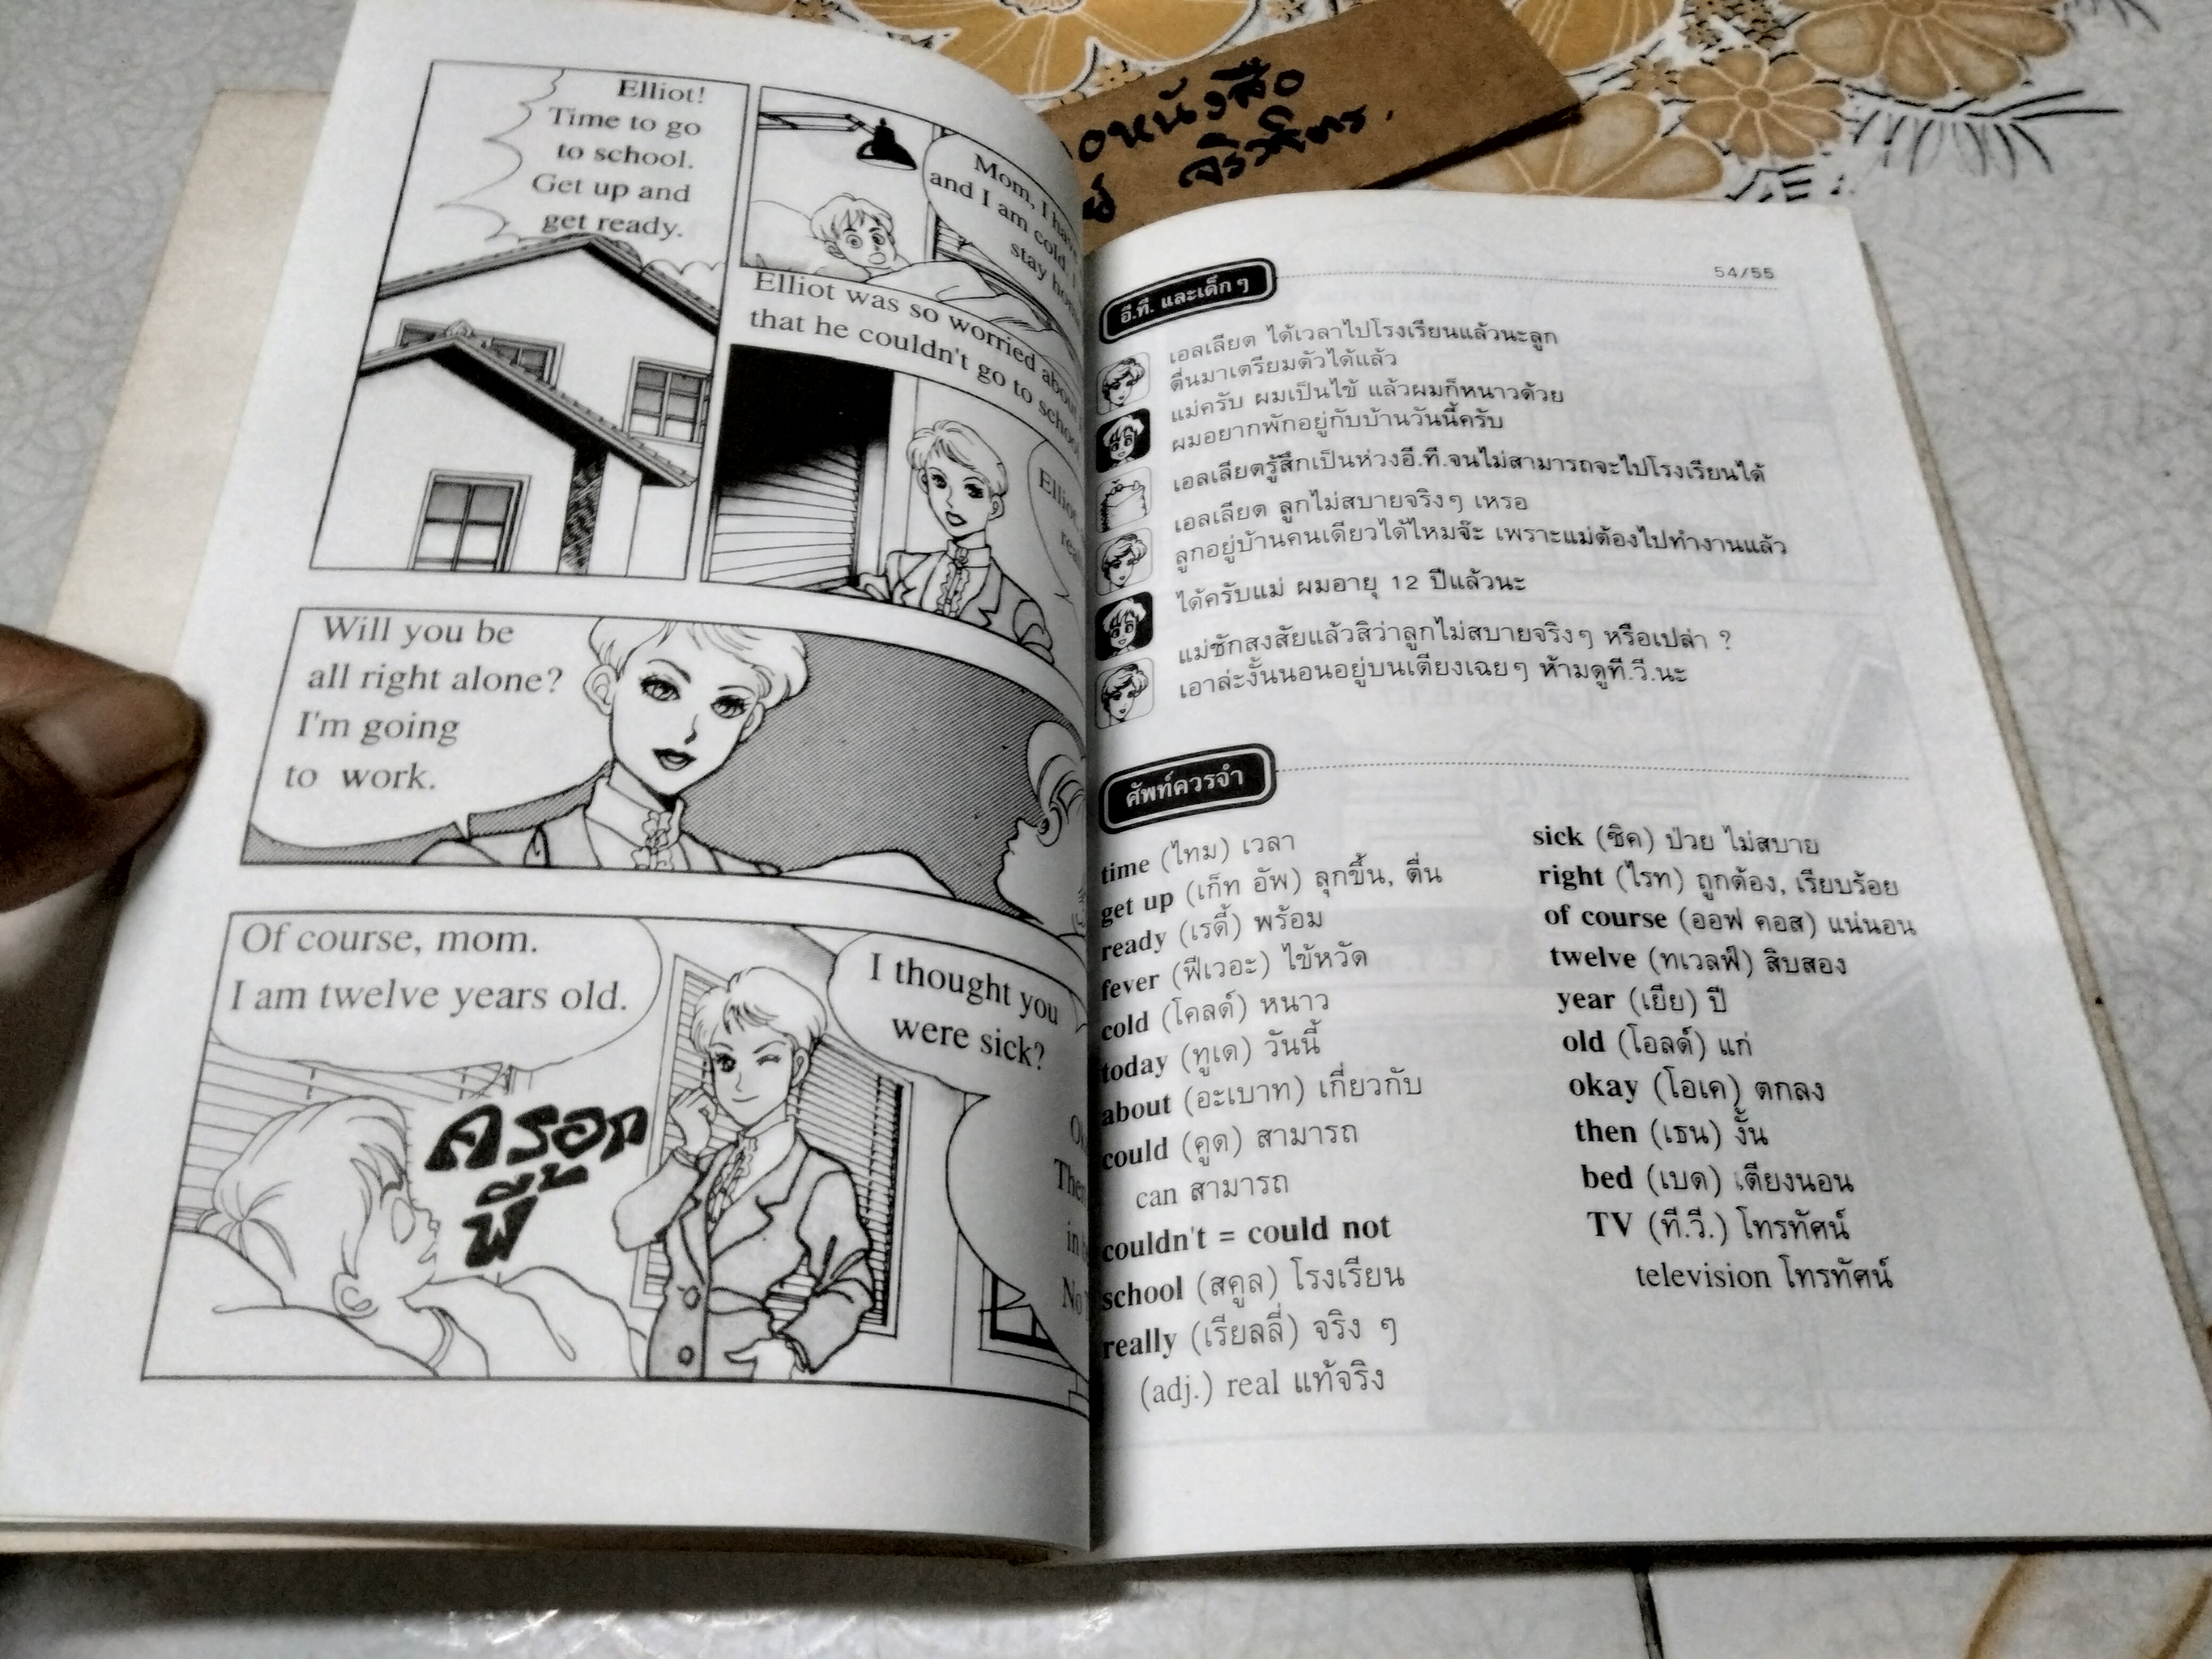 Elliot!
Time to go
to school.
Get up and
get ready.
Mom, I have
and I am cold. I
stay home
Elliot was so worried about
that he couldn't go to school
Elliot,
Will you be
all right alone?
I'm going
to work.
Of course, mom.
I am twelve years old.
I thought you
were sick?
Then
in
No
ครอก
ฟี้
หนังสือ
54/55
อี.ที. และเด็กๆ
เอลเลียต ได้เวลาไปโรงเรียนแล้วนะลูก
ตื่นมาเตรียมตัวได้แล้ว
แม่ครับ ผมเป็นไข้ แล้วผมก็หนาวด้วย
ผมอยากพักอยู่กับบ้านวันนี้ครับ
เอลเลียตรู้สึกเป็นห่วงอี.ที.จนไม่สามารถจะไปโรงเรียนได้
เอลเลียต ลูกไม่สบายจริงๆ เหรอ
ลูกอยู่บ้านคนเดียวได้ไหมจ๊ะ เพราะแม่ต้องไปทำงานแล้ว
ได้ครับแม่ ผมอายุ 12 ปีแล้วนะ
แม่ชักสงสัยแล้วสิว่าลูกไม่สบายจริงๆ หรือเปล่า ?
เอาล่ะงั้นนอนอยู่บนเตียงเฉยๆ ห้ามดูที.วี.นะ
ศัพท์ควรจำ
time (ไทม) เวลา
get up (เก็ท อัพ) ลุกขึ้น, ตื่น
ready (เรดี้) พร้อม
fever (ฟีเวอะ) ไข้หวัด
cold (โคลด์) หนาว
today (ทูเด) วันนี้
about (อะเบาท) เกี่ยวกับ
could (คูด) สามารถ
can สามารถ
couldn't = could not
school (สคูล) โรงเรียน
really (เรียลลี่) จริง ๆ
(adj.) real แท้จริง
sick (ซิค) ป่วย ไม่สบาย
right (ไรท) ถูกต้อง, เรียบร้อย
of course (ออฟ คอส) แน่นอน
twelve (ทเวลฟ์) สิบสอง
year (เยีย) ปี
old (โอลด์) แก่
okay (โอเค) ตกลง
then (เธน) งั้น
bed (เบด) เตียงนอน
TV (ที.วี.) โทรทัศน์
television โทรทัศน์